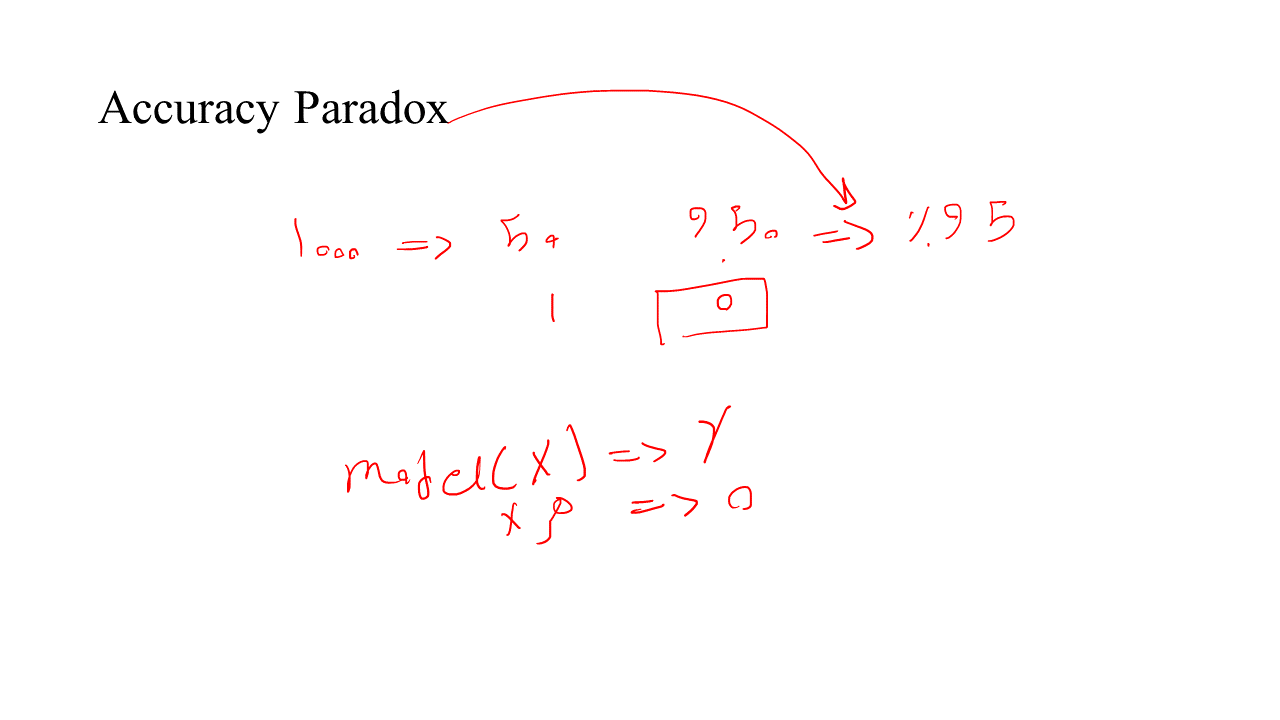 Accuracy Paradox
1000 => 50 950 => %95
1 0
model(X) => Y
=> 0